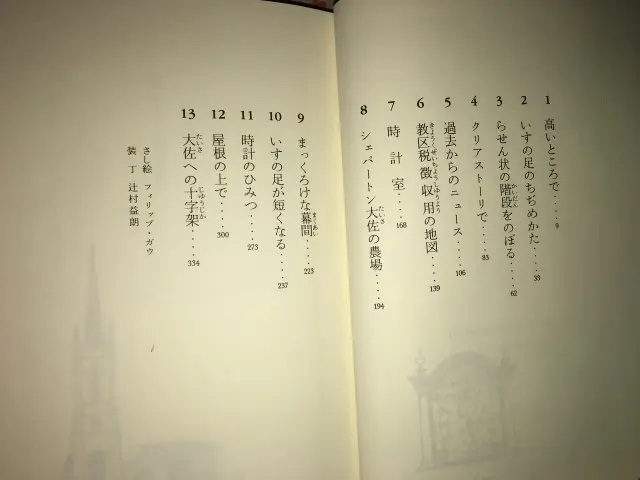 1 高いところで‥‥9
2 いすの足のちぢめかた‥‥33
3 らせん状の階段をのぼる‥‥62
4 クリアストーリで‥‥83
5 過去からのニュース‥‥106
6 教区税徴収用の地図‥‥139
7 時計室‥‥168
8 シェパートン大佐の農場‥‥194
9 まっくろけな幕間‥‥223
10 いすの足が短くなる‥‥237
11 時計のひみつ‥‥273
12 屋根の上で‥‥300
13 大佐への十字架‥‥334
さし絵 フィリップ・ガウ
装丁 辻村益朗